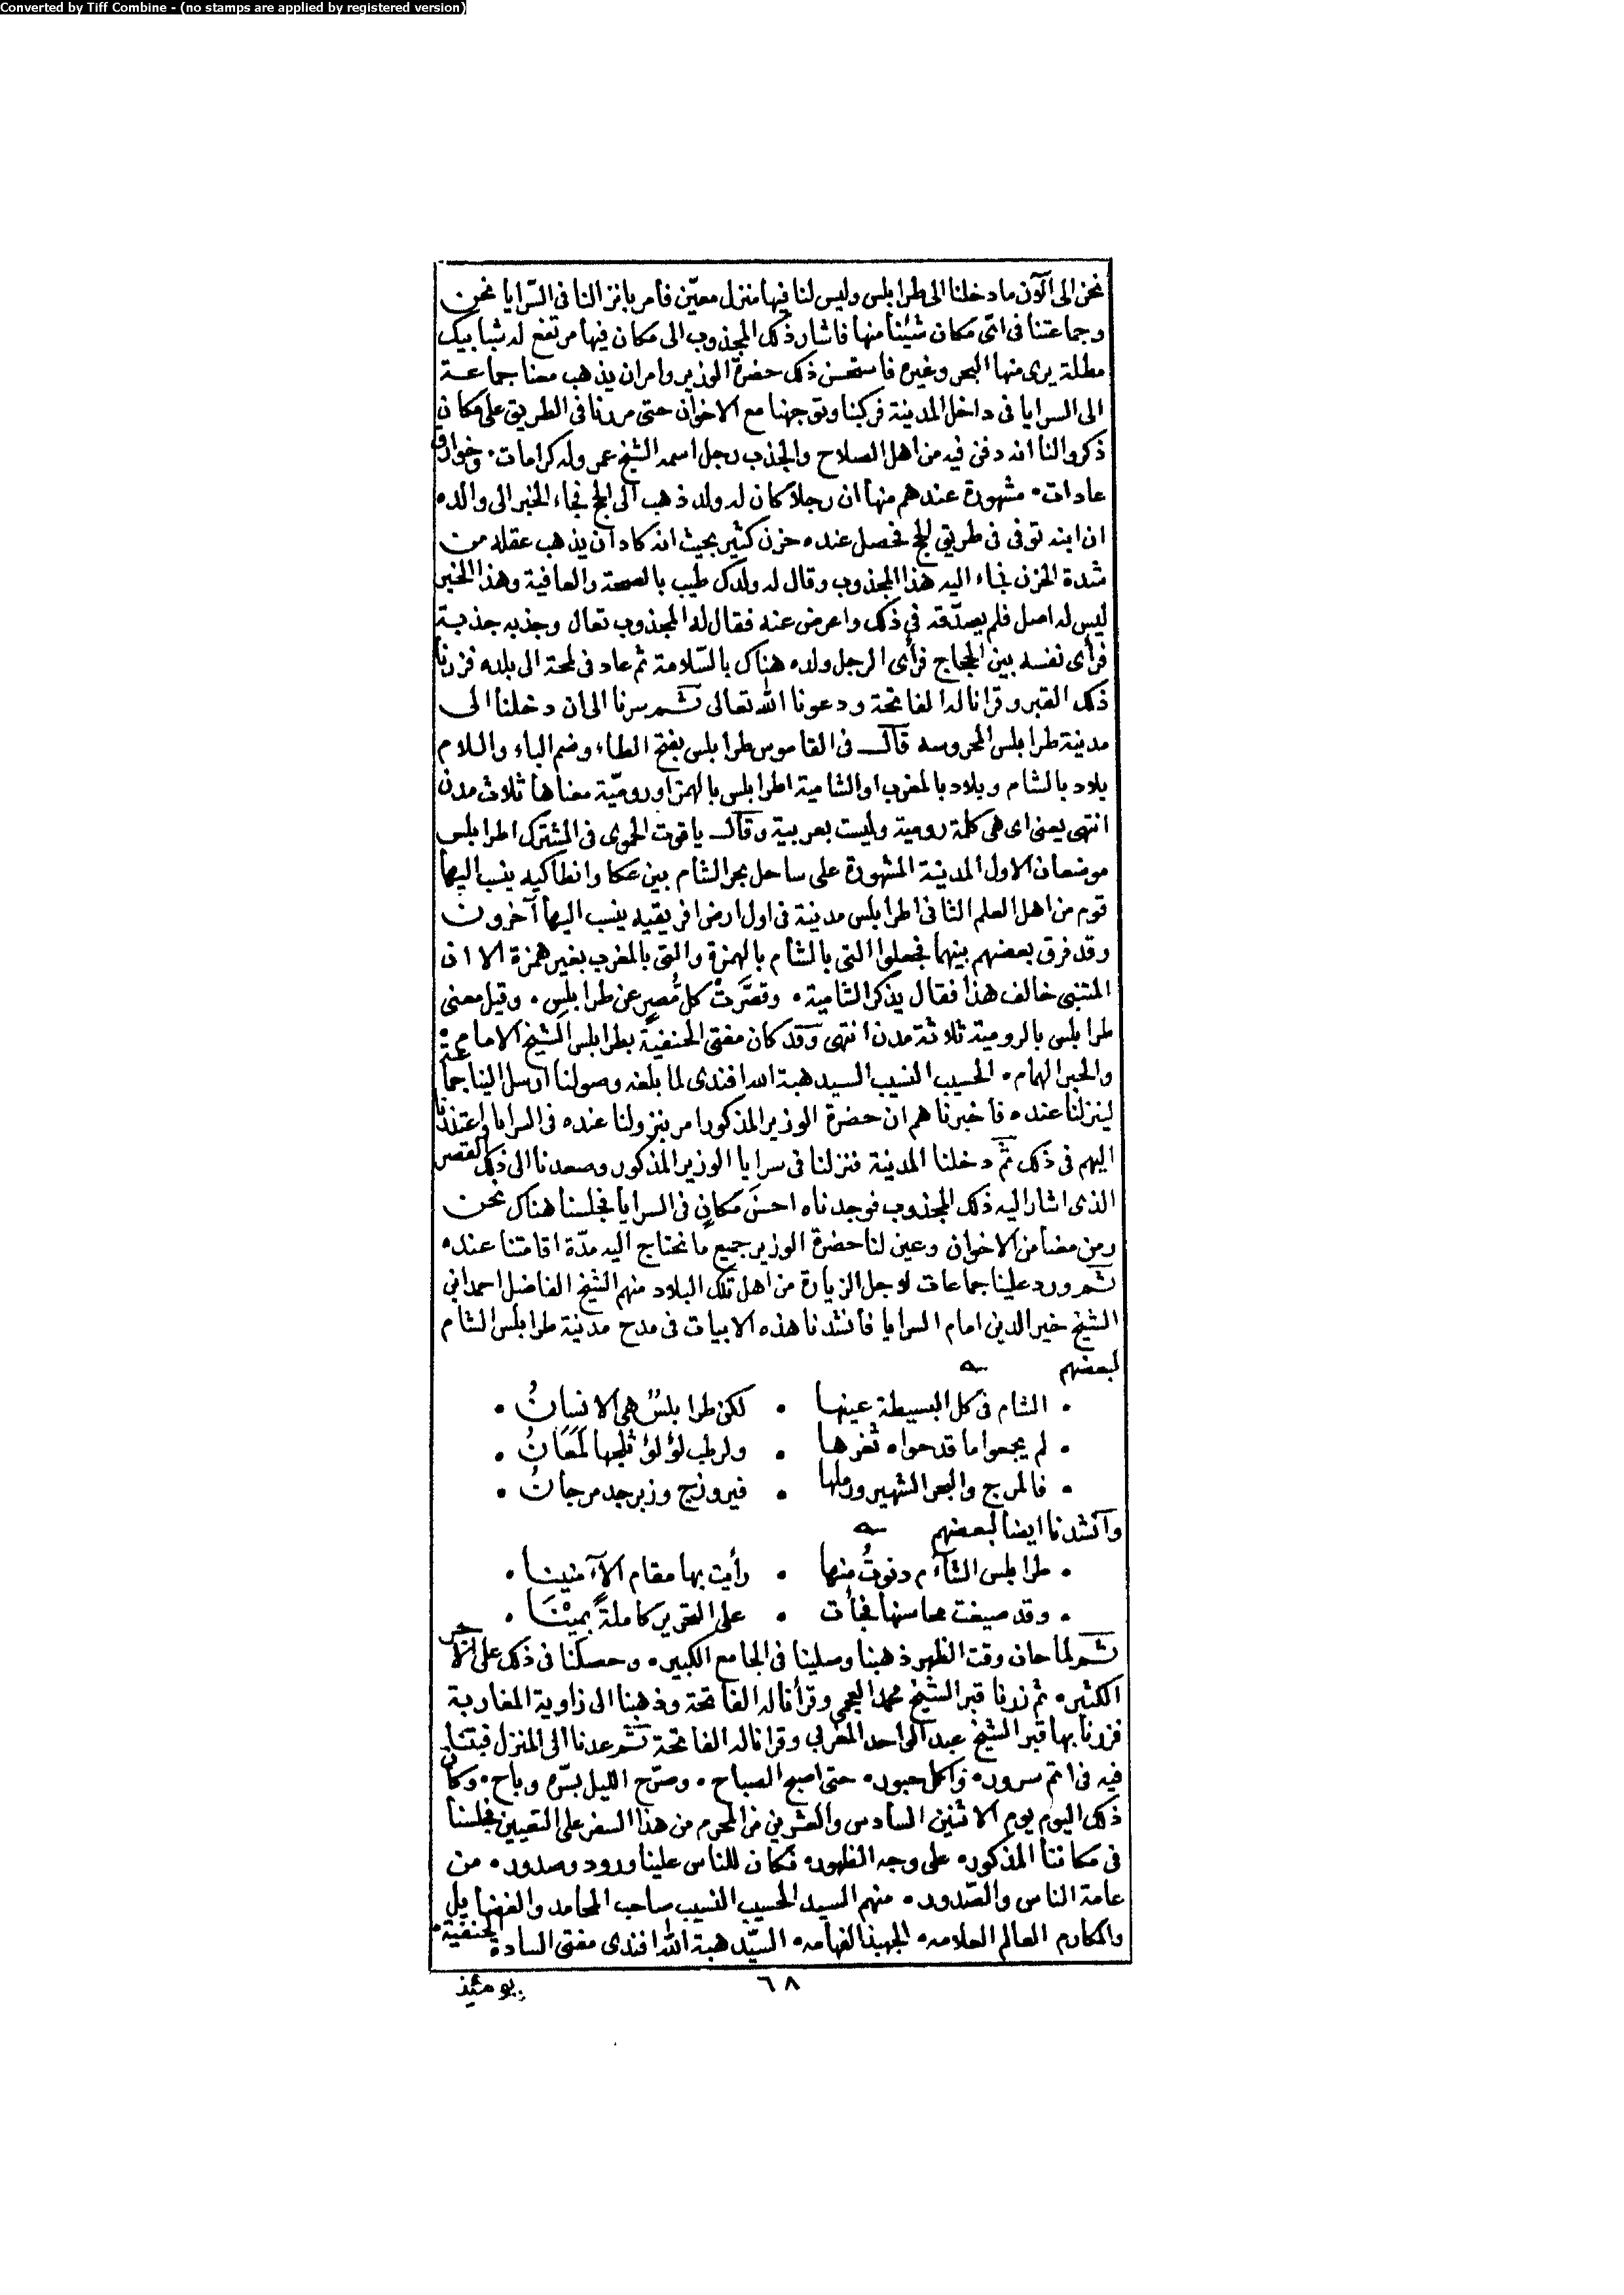 Converted by Tiff Combine - (no stamps are applied by registered version)
نحن الى الآن ما دخلنا الى طرابلس وليس لنا فيها منزل معيّن فأمر بانزالنا فى السّرايا نحن
وجماعتنا فى اىّ مكان شئنا منها فاشار ذلك المجذوب الى مكان فيها مرتفع له شبابيك
مطلة يرى منها البحر وغيره فاستحسن ذلك حضرة الوزير وامر ان يذهب معنا جماعة
الى السرايا فى داخل المدينة فركبنا وتوجهنا مع الاخوان حتى مررنا فى الطريق على مكان
ذكروا لنا انه دفن فيه من اهل الصلاح والجذب رجل اسمه الشيخ عمر وله كرامات ٠ وخوارق
عادات ٠ مشهورة عندهم منها ان رجلا كان له ولد ذهب الى الحج فجاء الخبر الى والده
ان ابنه توفى فى طريق الحج فحصل عنده حزن كثير بحيث انه كاد ان يذهب عقله من
شدة الحزن فجاء اليه هذا المجذوب وقال له ولدك طيب بالصحة والعافية وهذا الخبر
ليس له اصل فلم يصدّقه فى ذلك واعرض عنه فقال له المجذوب تعال وجذبه جذبة
فرأى نفسه بين الحجاج فرأى الرجل ولده هناك بالسّلامة ثم عاد فى لمحة الى بلده فزرنا
ذلك القبر وقرانا له الفاتحة ودعونا الله تعالى ثم سرنا الى ان دخلنا الى
مدينة طرابلس المحروسه قال فى القاموس طرابلس بفتح الطاء وضم الباء واللام
بلاد بالشام وبلاد بالمغرب او الشامية اطرابلس بالهمز او روميّة معناها ثلاث مدن
انتهى يعنى اى هى كلمة رومية وليست بعربية وقال ياقوت الحموى فى المشترك اطرابلس
موضعان الاول المدينة المشهورة على ساحل بحر الشام بين عكا وانطاكيه ينسب اليها
قوم من اهل العلم الثانى اطرابلس مدينة فى اول ارض افريقيه ينسب اليها آخرون
وقد فرق بعضهم بينهما فجعلوا التى بالشام بالهمزة والتى بالمغرب بغير همزة الا ان
المتنبى خالف هذا فقال يذكر الشامية ٠ وقصّرت كل مُصيرٍ عن طرابلس ٠ وقيل معنى
طرابلس بالرومية ثلاثة مدن انتهى وقد كان مفتى الحنفية بطرابلس الشيخ الامام ٠
والحبر الهمام ٠ الحسيب النسيب السيد هبة الله افندى لما بلغه وصولنا ارسل الينا جماعة
لينزلنا عنده فأخبرناهم ان حضرة الوزير المذكور امر بنزولنا عنده فى السرايا واعتذرنا
اليهم فى ذلك ثمّ دخلنا المدينة فنزلنا فى سرايا الوزير المذكور وصعدنا الى ذلك القصر
الذى اشار اليه ذلك المجذوب فوجدناه احسنَ مكانٍ فى السرايا فجلسنا هناك نحن
ومن معنا من الاخوان وعين لنا حضرة الوزير جميع ما نحتاج اليه مدّة اقامتنا عنده
ثم ورد علينا جماعات لاجل الزيارة من اهل تلك البلاد منهم الشيخ الفاضل احمد ابن
الشيخ خير الدين امام السرايا فأنشدنا هذه الابيات فى مدح مدينة طرابلس الشام
لبعضهم
٠ الشام فى كل البسيطة عينها ٠ لكن طرابلسٌ هى الانسانُ ٠
٠ لم يجمعوا ما قد حواه ثغرها ٠ ولرطب لؤلؤ ثلجها لَمَعَانُ ٠
٠ فالمرج والبحر الشهير ورملها ٠ فيروزج وزبرجد مرجانُ ٠
وأنشدنا ايضا لبعضهم
٠ طرابلس الشآم دنوتُ منها ٠ رأيت بها مقام الآمنينا ٠
٠ وقد صيغت محاسنها فجأت ٠ على التحرير كاملةً بمِيْنَا ٠
ثم لما حان وقت الظهر ذهبنا وصلينا فى الجامع الكبير ٠ وحصلنا فى ذلك على الأجر
الكثير ٠ ثم زرنا قبر الشيخ محمد العجمى وقرأنا له الفاتحة وذهبنا الى زاوية المغاربة
فزرنا بها قبر الشيخ عبد الواحد المغربي وقرانا له الفاتحة ثم عدنا الى المنزل فبتنا
فيه فى اتم سرور ٠ واكمل حبور ٠ حتى اصبح الصباح ٠ وصرّح الليل بسرّه وباح ٠ وكان
ذلك اليوم يوم الاثنين السادس والعشرين من المحرم من هذا السفر على التعيين فجلسنا
فى مكاننا المذكور ٠ على وجه الظهور ٠ فكان للناس علينا ورود وصدور ٠ من
عامة الناس والصّدور ٠ منهم السيد الحسيب النسيب صاحب المحامد والفضايل
والمكارم العالم العلامه ٠ الجهبذ الفهامه ٠ السيّد هبة الله افندى مفتى السادة الحنفية ٠
٦٨
يومئذ